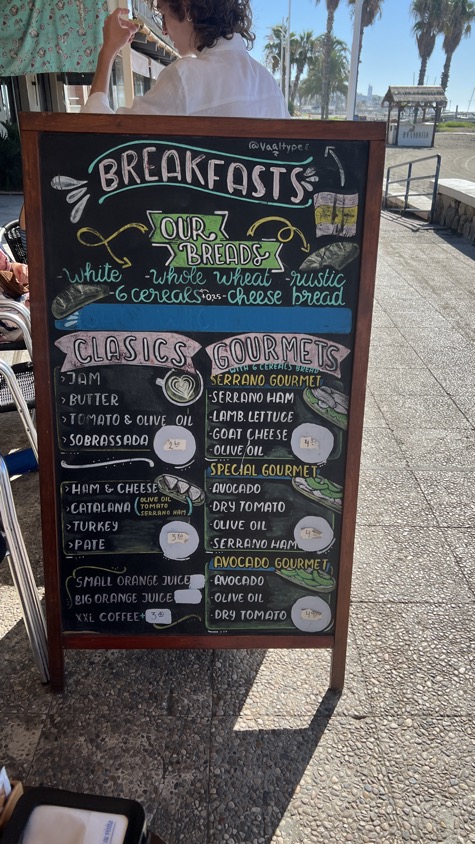 @Vaaltypes
BREAKFASTS
OUR
BREADS
-white -whole wheat -rustic
-6 cereals +0,25 -cheese bread
CLASICS
› JAM
› BUTTER
› TOMATO & OLIVE OIL
› SOBRASSADA
› HAM & CHEESE
› CATALANA OLIVE OIL TOMATO SERRANO HAM
› TURKEY
› PATE
SMALL ORANGE JUICE
BIG ORANGE JUICE
XXL COFFEE+
GOURMETS
WITH 6 CEREALS BREAD
SERRANO GOURMET
·SERRANO HAM
·LAMB LETTUCE
·GOAT CHEESE
·OLIVE OIL
SPECIAL GOURMET
·AVOCADO
·DRY TOMATO
·OLIVE OIL
·SERRANO HAM
AVOCADO GOURMET
·AVOCADO
·OLIVE OIL
·DRY TOMATO